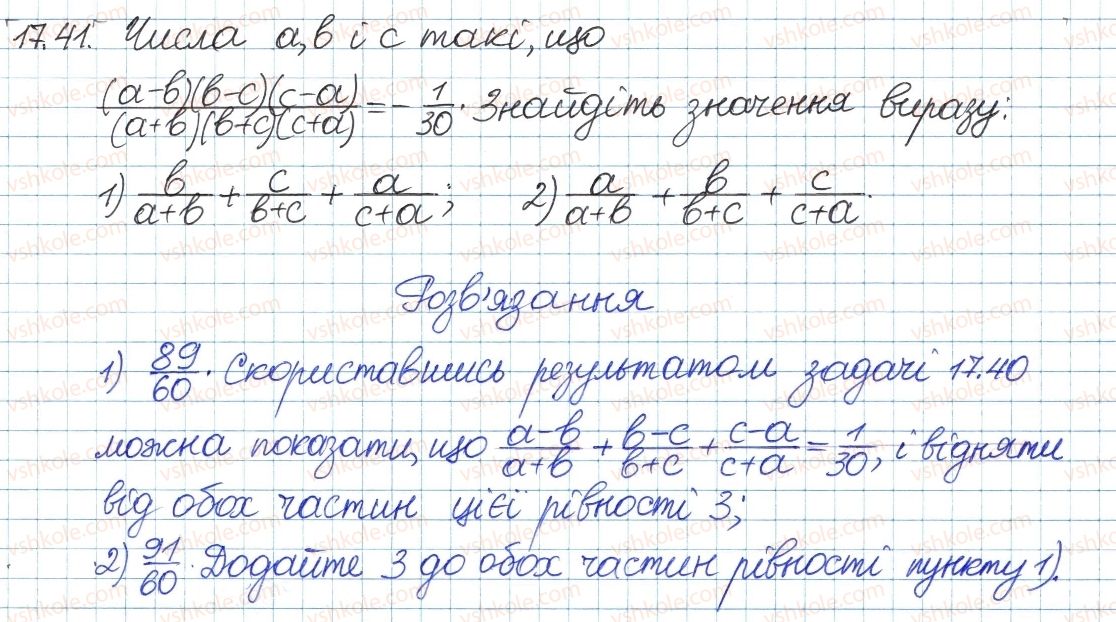 17.41. Числа a, b і c такі, що
(a-b)(b-c)(c-a)/(a+b)(b+c)(c+a) = - 1/30. Знайдіть значення виразу:
1) b/a+b + c/b+c + a/c+a; 2) a/a+b + b/b+c + c/c+a.
Розв'язання
1) 89/60. Скориставшись результатом задачі 17.40
можна показати, що a-b/a+b + b-c/b+c + c-a/c+a = 1/30, і відняти
від обох частин цієї рівності 3;
2) 91/60. Додайте 3 до обох частин рівності пункту 1).